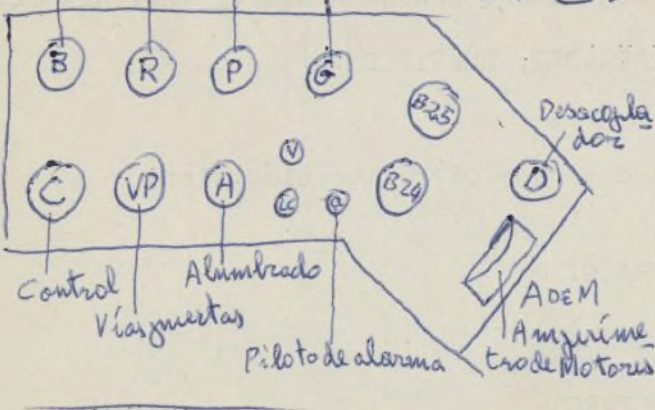 B R P G
B25
Desacopla
dor
C VP A V
LC a
B24
D
Control
Alumbrado
Vías muertas
Piloto de alarma
ADEM
Amperíme
tro de Motores